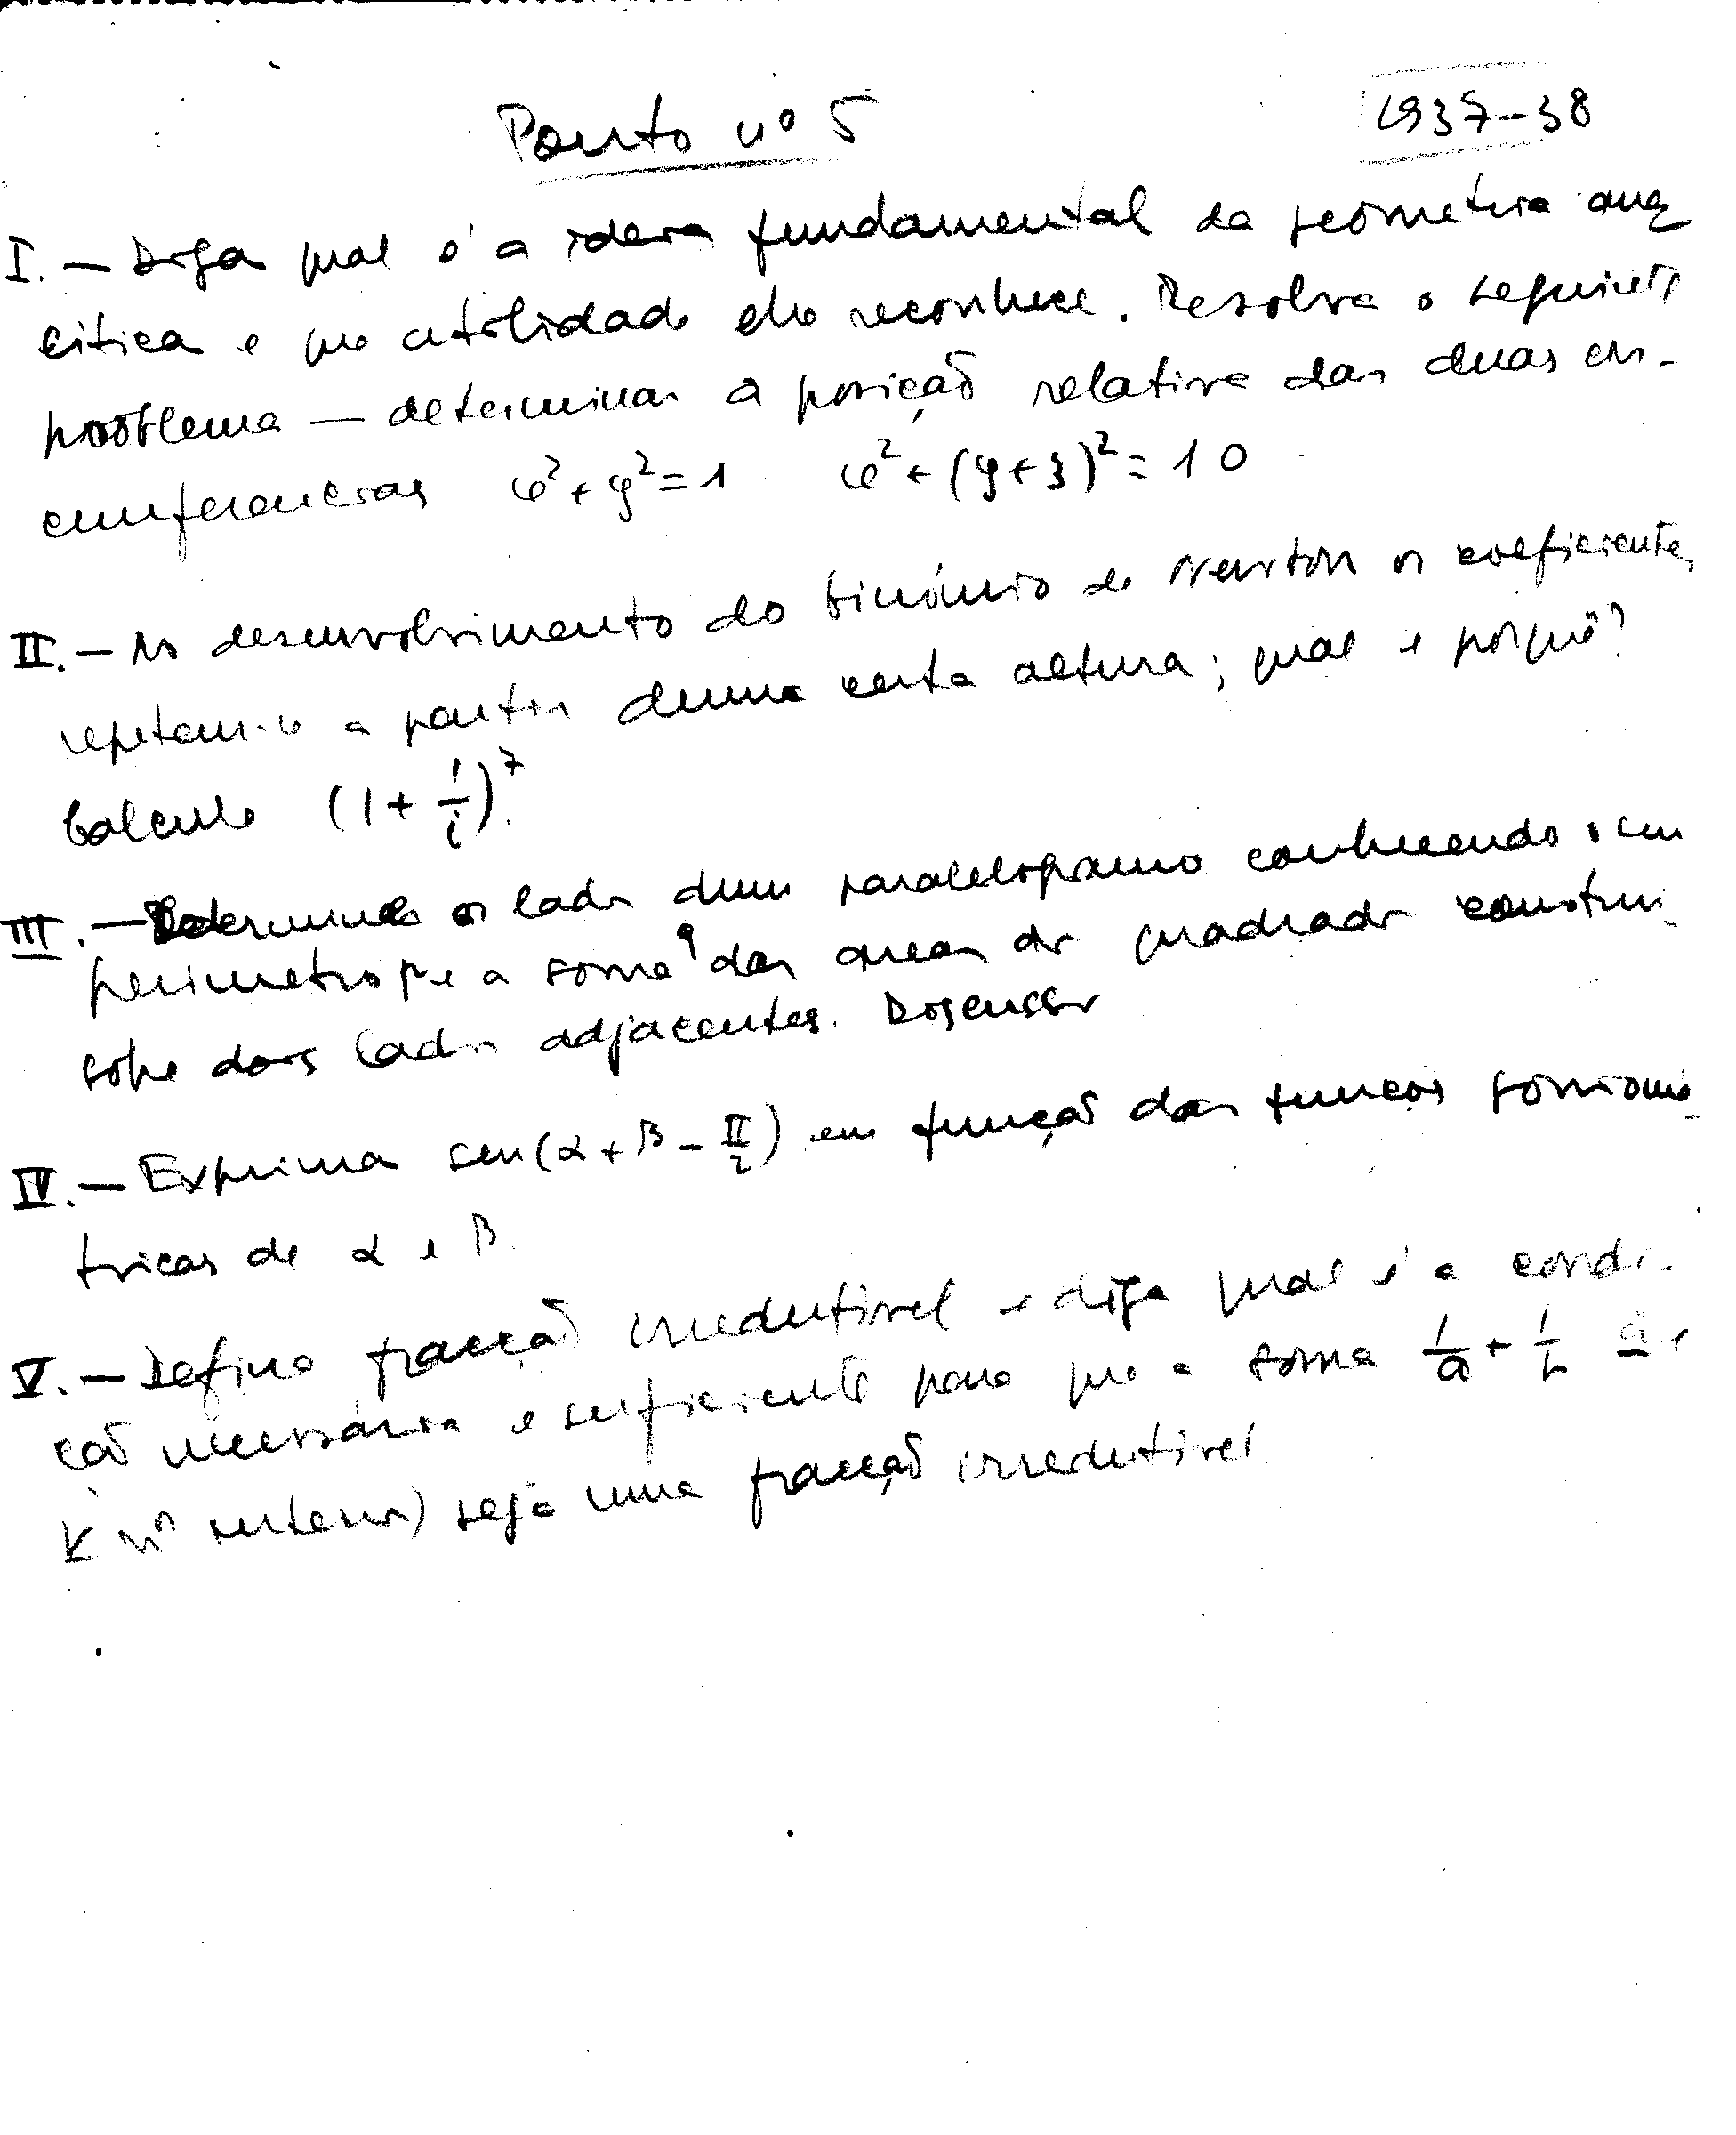 Ponto nº 5
1937-38
I. — Diga qual é a ideia fundamental da geometria ana
lítica e que utilidade lhe reconhece. Resolva o seguinte
problema — determinar a posição relativa das duas cir-
cunferencias x²+y²=1 x²+(y+3)²=10
II. — No desenvolvimento do binómio de Newton os coeficientes
repetem-se a partir duma certa altura; qual e porquê?
Calcule (1+1/i)⁷.
III. — Determine os lados dum paralelogramo conhecendo o seu
perimetro p e a soma q das areas dos quadrados construi-
sobre dois lados adjacentes. Discussão
IV. — Exprima sen(α+β-π/2) em função das funções goniomé
tricas de α e β.
V. — Defina fracção irredutivel e diga qual é a condi-
ção necessária e suficiente para que a soma 1/a + 1/b a e
b nºs inteiros) seja uma fracção irredutivel